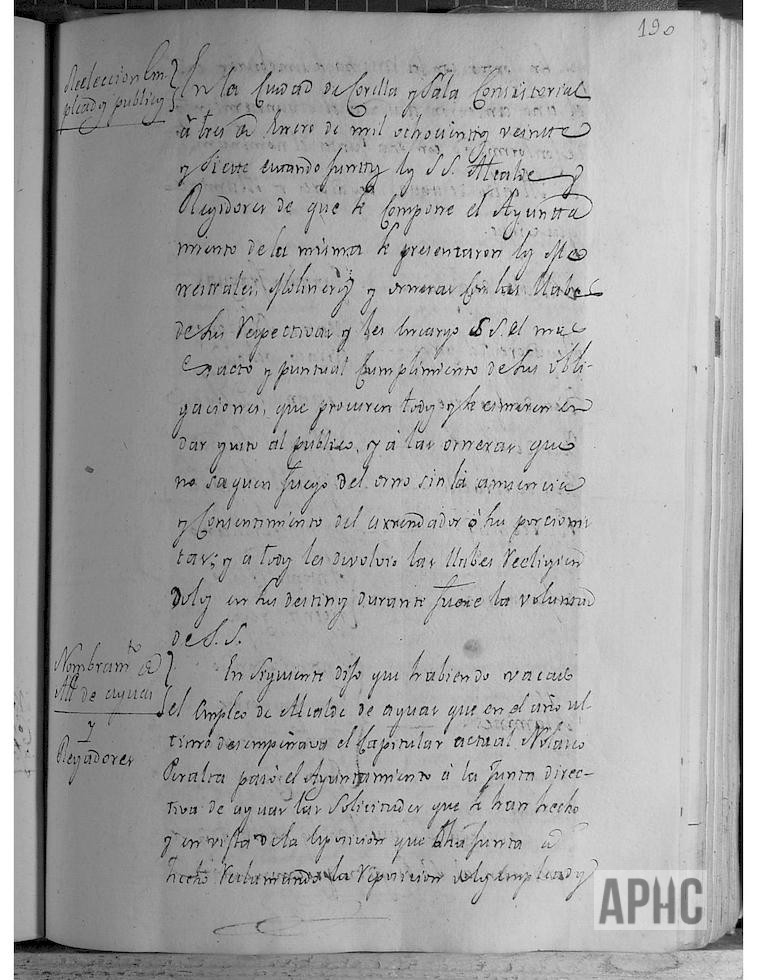 190
Reeleccion Em-
pleados publicos
En la Ciudad de Corella y Sala Consistorial
à tres de Enero de mil ochocientos veinte
y siete estando juntos los S.S. Alcalde y
Regidores de que se compone el Ayunta
miento de la misma se presentaron los Me
nestrales, Molineros y orneras con las llabes
de sus respectivas y les encargo S.S. el mas
exacto y puntual cumplimiento de sus obli-
gaciones, que procuren todos y se esmeren en
dar gusto al público, y á las orneras que
no saquen fuego del orno sin la anuencia
y consentimiento del arrendador ò sus porcionis
tas; y a todos les devolvio las llabes reeligien
dolos en sus destinos durante fuere la voluntad
de S.S.
Nombramto de
Alle de aguas
y
Regadores
En siguiente dijo que habiendo vacado
el empleo de Alcalde de aguas que en el año ul-
timo desempeñava el Capitular actual Nolasco
Peralta pasó el Ayuntamiento à la Junta direc-
tiva de aguas las solicitudes que se han hecho
y en vista de la esposicion que dha Junta à
hecho reclamando la reposicion de los empleados
APHC